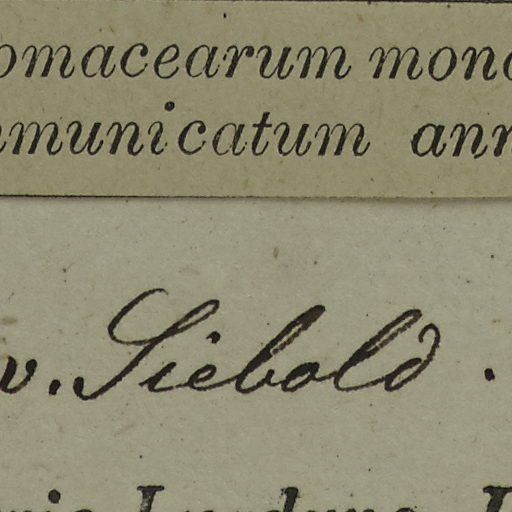 omacearum mono
mmunicatum ann
v. Siebold.